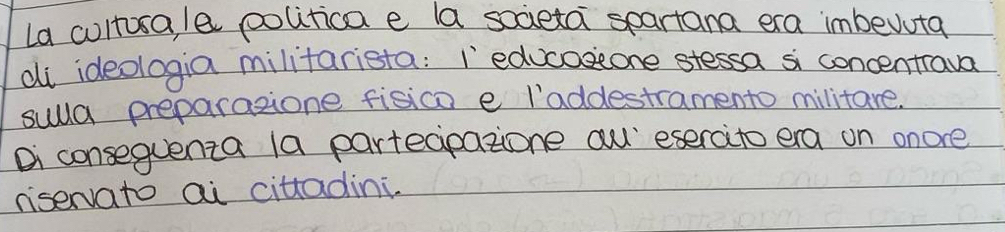 La cultura, la politica e la società spartana era imbevuta
di ideologia militarista: l'educazione stessa si concentrava
sulla preparazione fisica e l'addestramento militare.
Di conseguenza la partecipazione all'esercito era un onore
riservato ai cittadini.